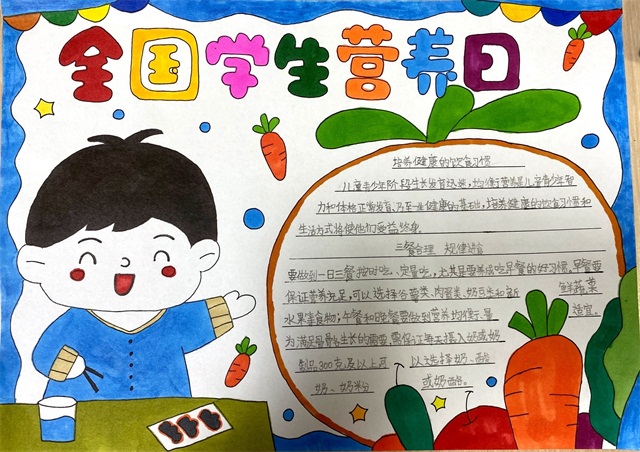 全国学生营养日
培养健康的饮食习惯
儿童青少年阶段生长发育迅速，均衡营养是儿童青少年智
力和体格正常发育，乃至一生健康的基础，培养健康的饮食习惯和
生活方式将使他们受益终身
三餐合理 规律进食
要做到一日三餐按时吃、定量吃，尤其是要养成吃早餐的好习惯。早餐要
保证营养充足，可以选择谷薯类、肉蛋类、奶豆类和新鲜蔬菜
水果等食物；午餐和晚餐要做到营养均衡，量适宜。
为满足骨骼生长的需要，需保证每天摄入奶或奶
制品300克及以上，可以选择奶、酸
奶、奶粉或奶酪。